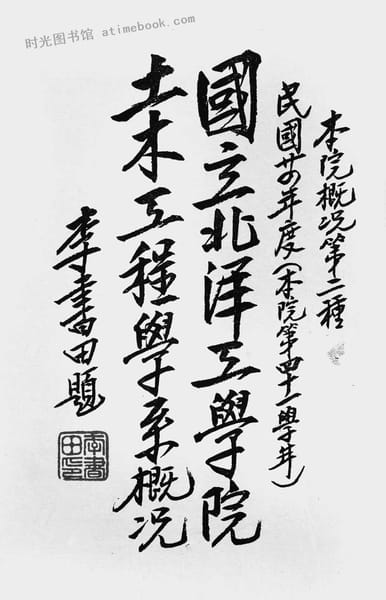 时光图书馆 atimebook.com
本院概况第二種
民國廿四年度（本院第四十一學年）
國立北洋工學院
土木工程學系概况
李書田題
李書田印